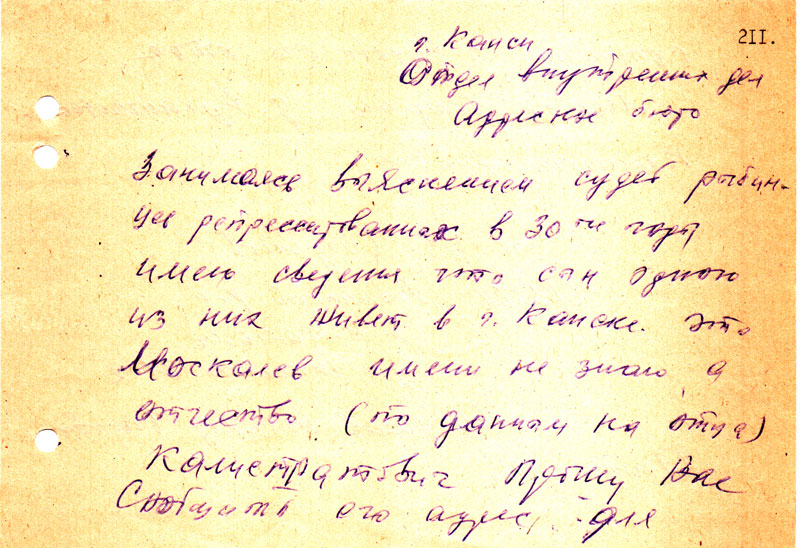 211.
г. Канск
Отдел внутренних дел
Адресное бюро
Занимаясь выяснением судеб рыбин-
цев репрессированных в 30ые годы
имею сведения что сын одного
из них живет в г. Канске. Это
Москалев имени не знаю а
отчество (по данным на отца)
Калистратович Прошу Вас
Сообщить его адрес, для